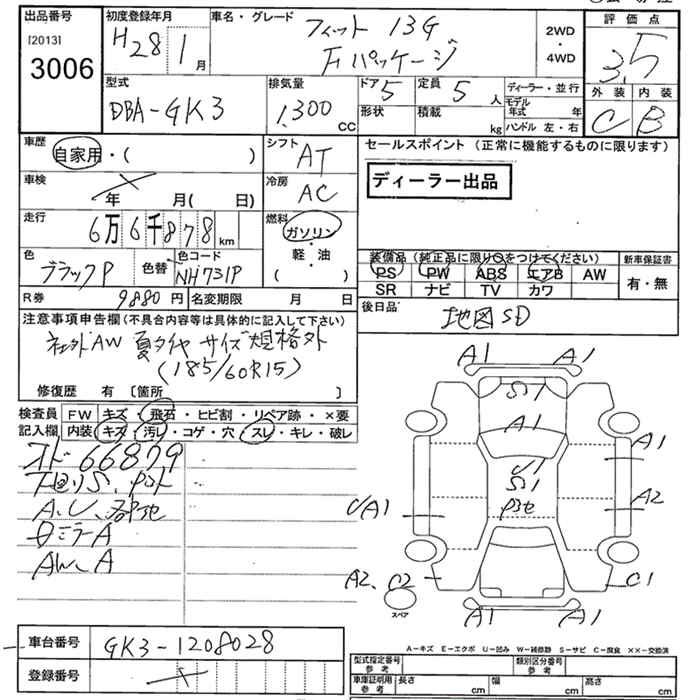 出品番号 初度登録年月 車名・グレード 評価点
[2013] 3006
H28 1月
フィット 13G
Fパッケージ
2WD・4WD
3.5
型式 排気量 ドア 定員 ディーラー・並行 外装 内装
DBA-GK3 1,300 CC 5 5人
モデル年式 年
形状 積載 kg ハンドル 左・右
C B
車歴 シフト セールスポイント（正常に機能するものに限ります）
自家用・( ) AT
ディーラー出品
車検 年 月( 日) 冷房 AC
走行 6万6千878km 燃料 ガソリン・軽油( )
色 ブラックP 色替 色コード NH731P
装備品（純正品に限り○をつけてください） 新車保証書
PS PW ABS エアB AW 有・無
SR ナビ TV カワ
R券 9880円 名変期限 月 日
後日品 地図SD
注意事項申告欄（不具合内容等は具体的に記入して下さい）
社外AW 夏タイヤ サイズ規格外
(185/60R15)
修復歴 有〔箇所 〕
検査員記入欄 FW キズ・飛石・ヒビ割・リペア跡・×要
内装 キズ・汚レ・コゲ・穴・スレ・キレ・破レ
オド 66879
A.C
ミラーA
AW.A
A1 A1
S1
A1
A1
S1
A2
A1
A2、C2
C1
スペア
A1 A1
A－キズ E－エクボ U－凹み W－補修跡 S－サビ C－腐食 ××－交換済
車台番号 GK3-1208028
登録番号
型式指定番号 参考 類別区分番号 参考
車庫証明用 参考 長さ cm 幅 cm 高さ cm